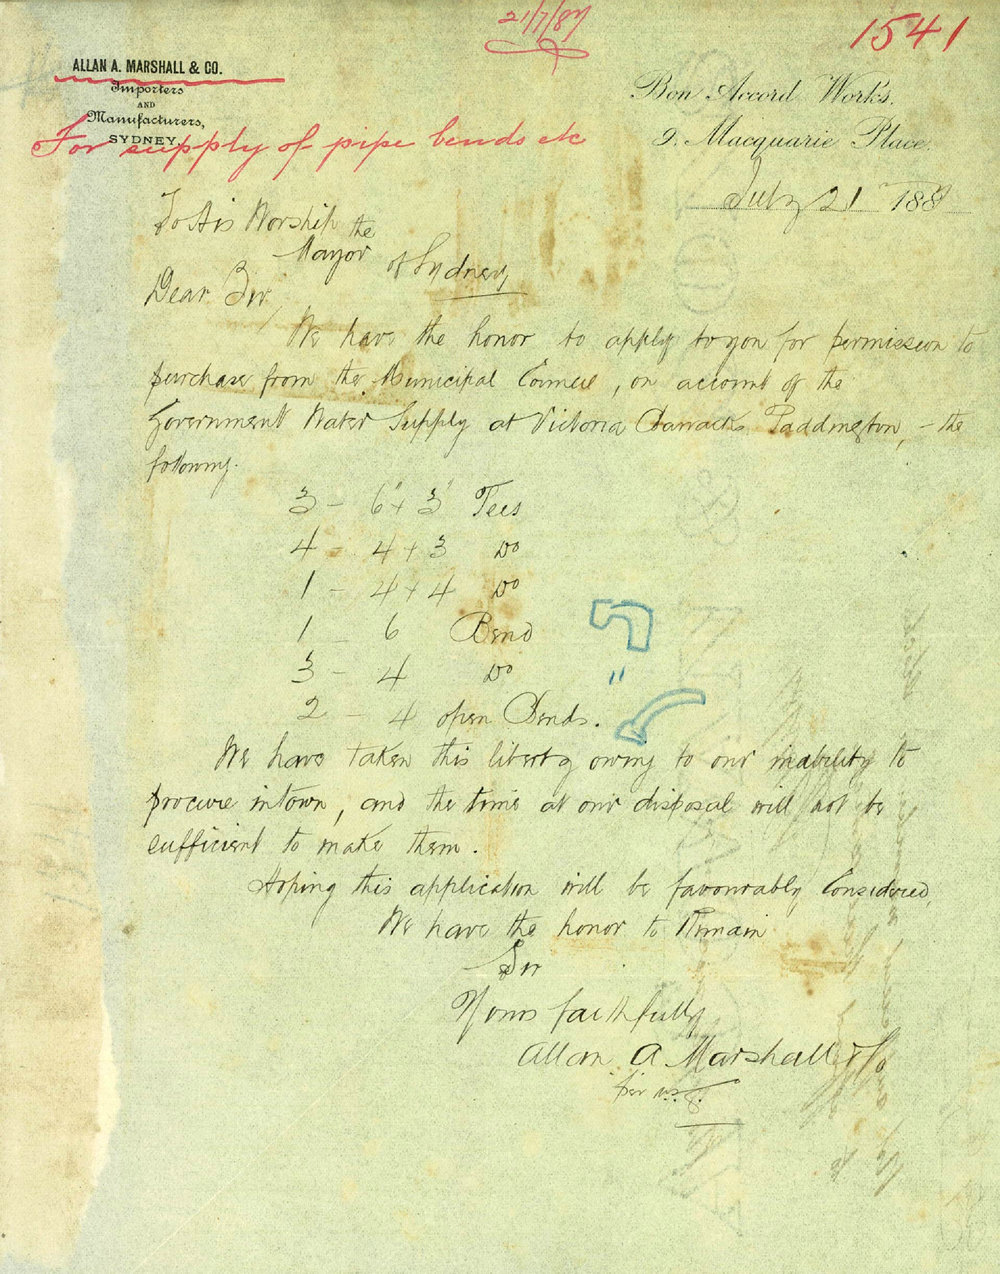 21/7/87
1541
ALLAN A. MARSHALL & CO.
Importers
AND
Manufacturers,
SYDNEY.
For supply of pipe bends etc
Bon Accord Works.
9. Macquarie Place.
July 21 1887
To His Worship the
Mayor of Sydney
Dear Sir,
We have the honor to apply to you for permission to
purchase from the Municipal Council, on account of the
Government Water Supply at Victoria Barracks Paddington, - the
following.
3 - 6" + 3" Tees
4 - 4 + 3 Do
1 - 4 + 4 Do
1 - 6 Bend
3 - 4 Do "
2 - 4 open Bends.
We have taken this liberty owing to our inability to
procure in town, and the time at our disposal will not be
sufficient to make them.
Hoping this application will be favourably Considered,
We have the honor to Remain
Sir
Yours faithfully
Allan A Marshall & Co
per